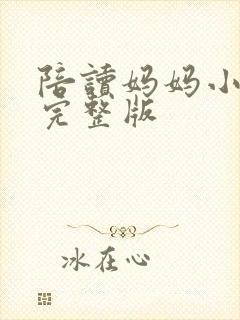 陪讀妈妈小
完整版
冰在心